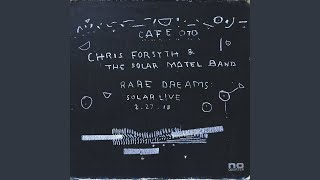 CAFE OTO
CHRIS FORSYTH &
THE SOLAR MOTEL BAND
RARE DREAMS:
SOLAR LIVE
2.27.18